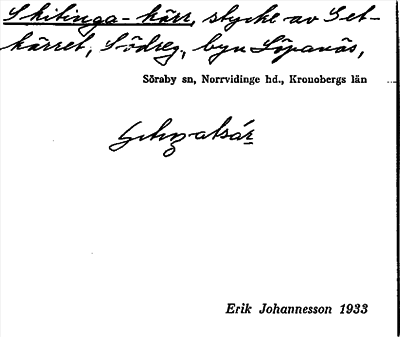 Skilinga-kärr, stycke av Get-
kärret, Södreg, byn Löpanäs,
Söraby sn, Norrvidinge hd., Kronobergs län
Erik Johannesson 1933